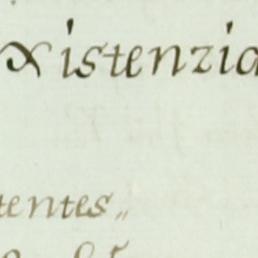 xistenzia
tentes,,